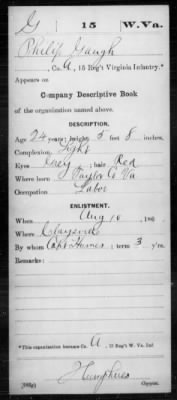 G 15 W.Va.
Philip Gaugh
Co. A, 15 Reg't Virginia Infantry.*
Appears on
Company Descriptive Book
of the organization named above.
DESCRIPTION.
Age 24 years; height 5 feet 8 inches.
Complexion Light
Eyes Grey; hair Red
Where born Taylor Co Va
Occupation Labor
ENLISTMENT.
When Aug 10, 186 .
Where Claysville
By whom Capt Humes; term 3 y'rs.
Remarks:
*This organization became Co. A, 15 Reg't W. Va. Inf.
Humphries
Copyist.